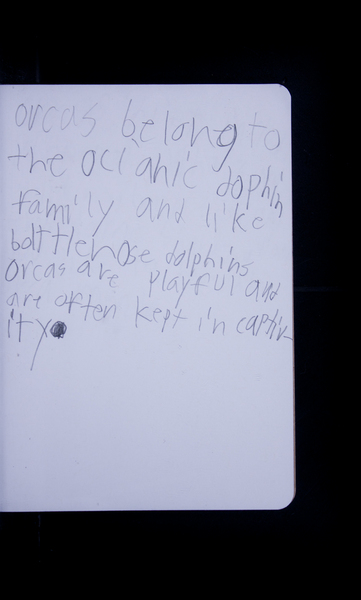 orcas belong to
the ocianic dophin
family and like
bottlenose dolphins
orcas are playful and
are often kept in captiv
ity.